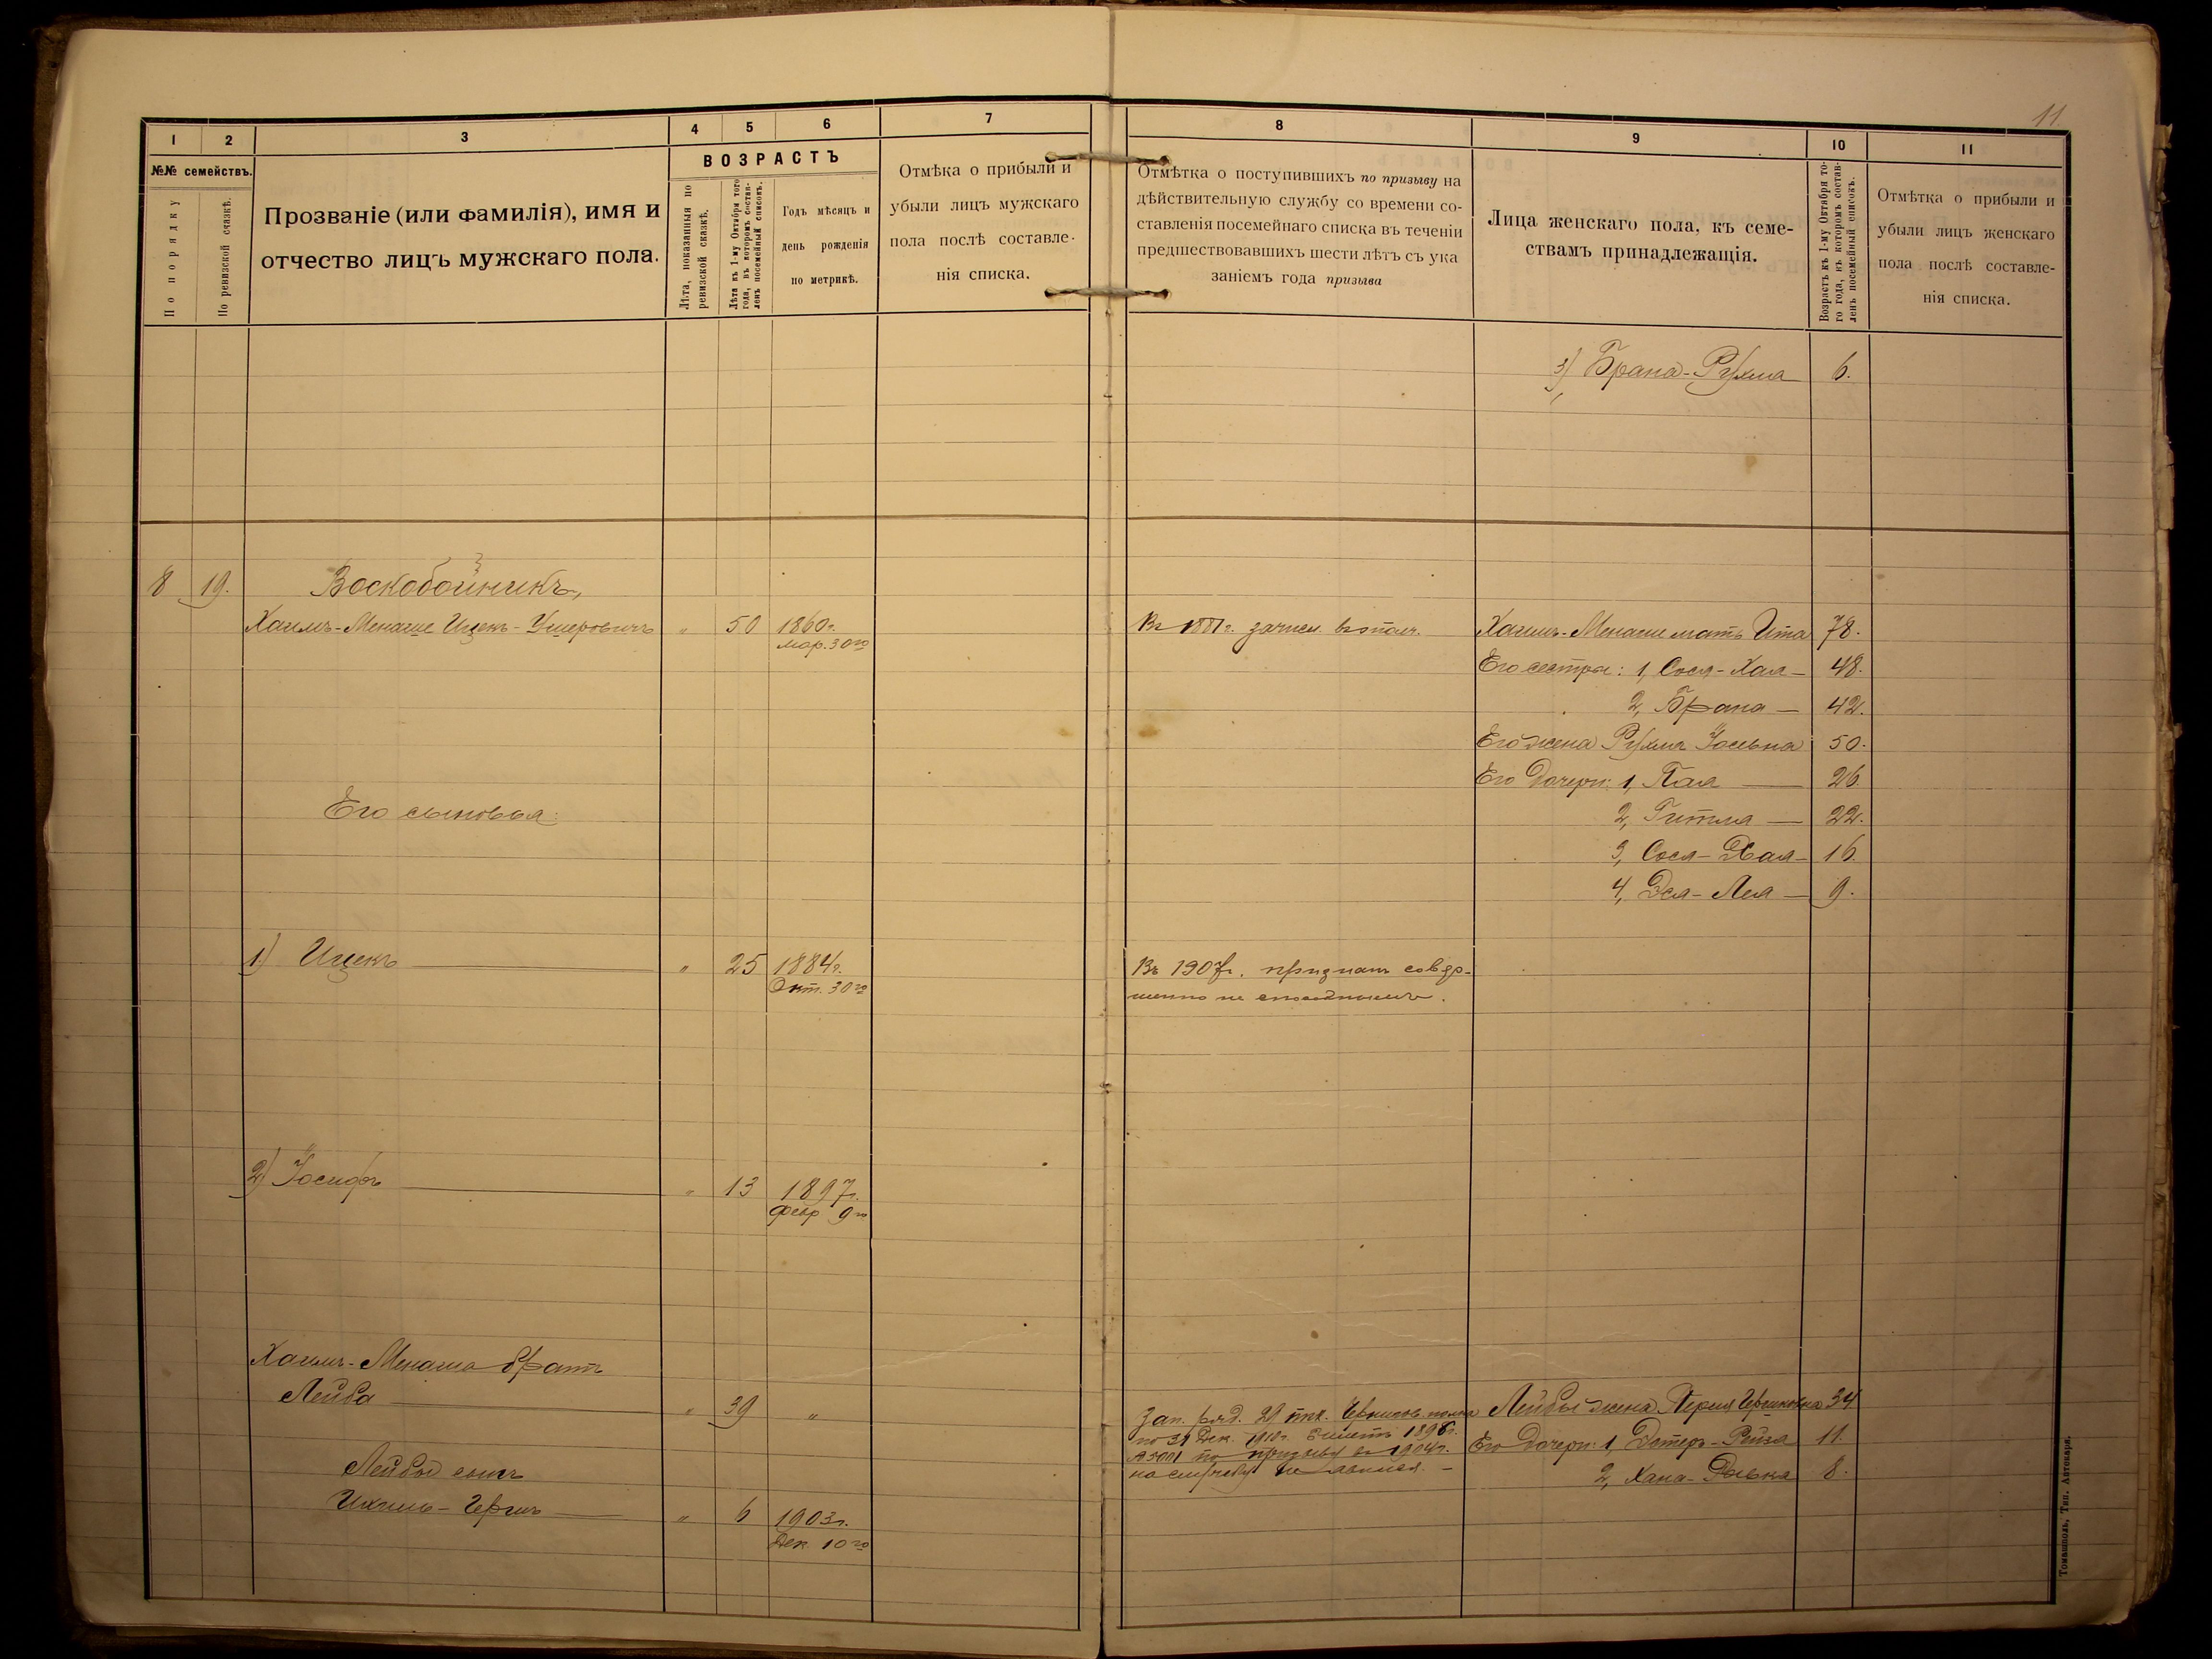 11.
1 2 3 4 5 6 7
№№ семействъ.
По порядку
По ревизской сказкѣ.
Прозваніе (или фамилія), имя и
отчество лицъ мужскаго пола.
ВОЗРАСТЪ
Лѣта, показанныя по
ревизской сказкѣ,
Лѣта къ 1-му Октября того
года, въ которомъ состав-
ленъ посемейный списокъ.
Годъ мѣсяцъ и
день рожденія
по метрикѣ.
Отмѣка о прибыли и
убыли лицъ мужскаго
пола послѣ составле-
нія списка.
8 19. Воскобойникъ,
Хаимъ-Менаше Ицекъ-Ушеровичъ " 50 1860г.
мар. 30го
Его сыновья:
1) Ицекъ " 25 1884г.
Окт. 30го
2) Іосифъ " 13 1897г.
Февр 9го
Хаимъ-Менаша братъ
Лейба " 39 "
Лейбы сынъ
Ихиль-Гершъ " 6 1903г.
Дек. 10го
8 9 10 11
Отмѣтка о поступившихъ по призыву на
дѣйствительную службу со времени со-
ставленія посемейнаго списка въ теченіи
предшествовавшихъ шести лѣтъ съ ука
заніемъ года призыва
Лица женскаго пола, къ семе-
ствамъ принадлежащія.
Возрастъ къ 1-му Октября то-
го года, къ которомъ состав-
ленъ посемейный списокъ.
Отмѣтка о прибыли и
убыли лицъ женскаго
пола послѣ составле-
нія списка.
3) Брана-Рухма 6.
Въ 1881г. зачисл. въ ополч. Хаимъ-Менаше мать Ита 78.
Его сестры: 1, Сося-Хая 48.
2, Брана 42.
Его жена Рухма Іосьвна 50.
Его дочери: 1, Пая 26.
2, Гитля 22.
3, Сося-Хая 16.
4, Эся-Лея 9.
Въ 1907г. признанъ совер-
шенно не способнымъ.
Зап. ряд. 29 пѣх. Чернигов. полка Лейбы жена Перля Гершковна 34
по 31 Дек. 1910г. Билетъ 1898г. Его дочери: 1, Эстеръ-Рейза 11.
по призыву въ 1904г.
на службу не явился. 2, Хана-Рывка 8.
Томашполь, Тип. Автокаря.